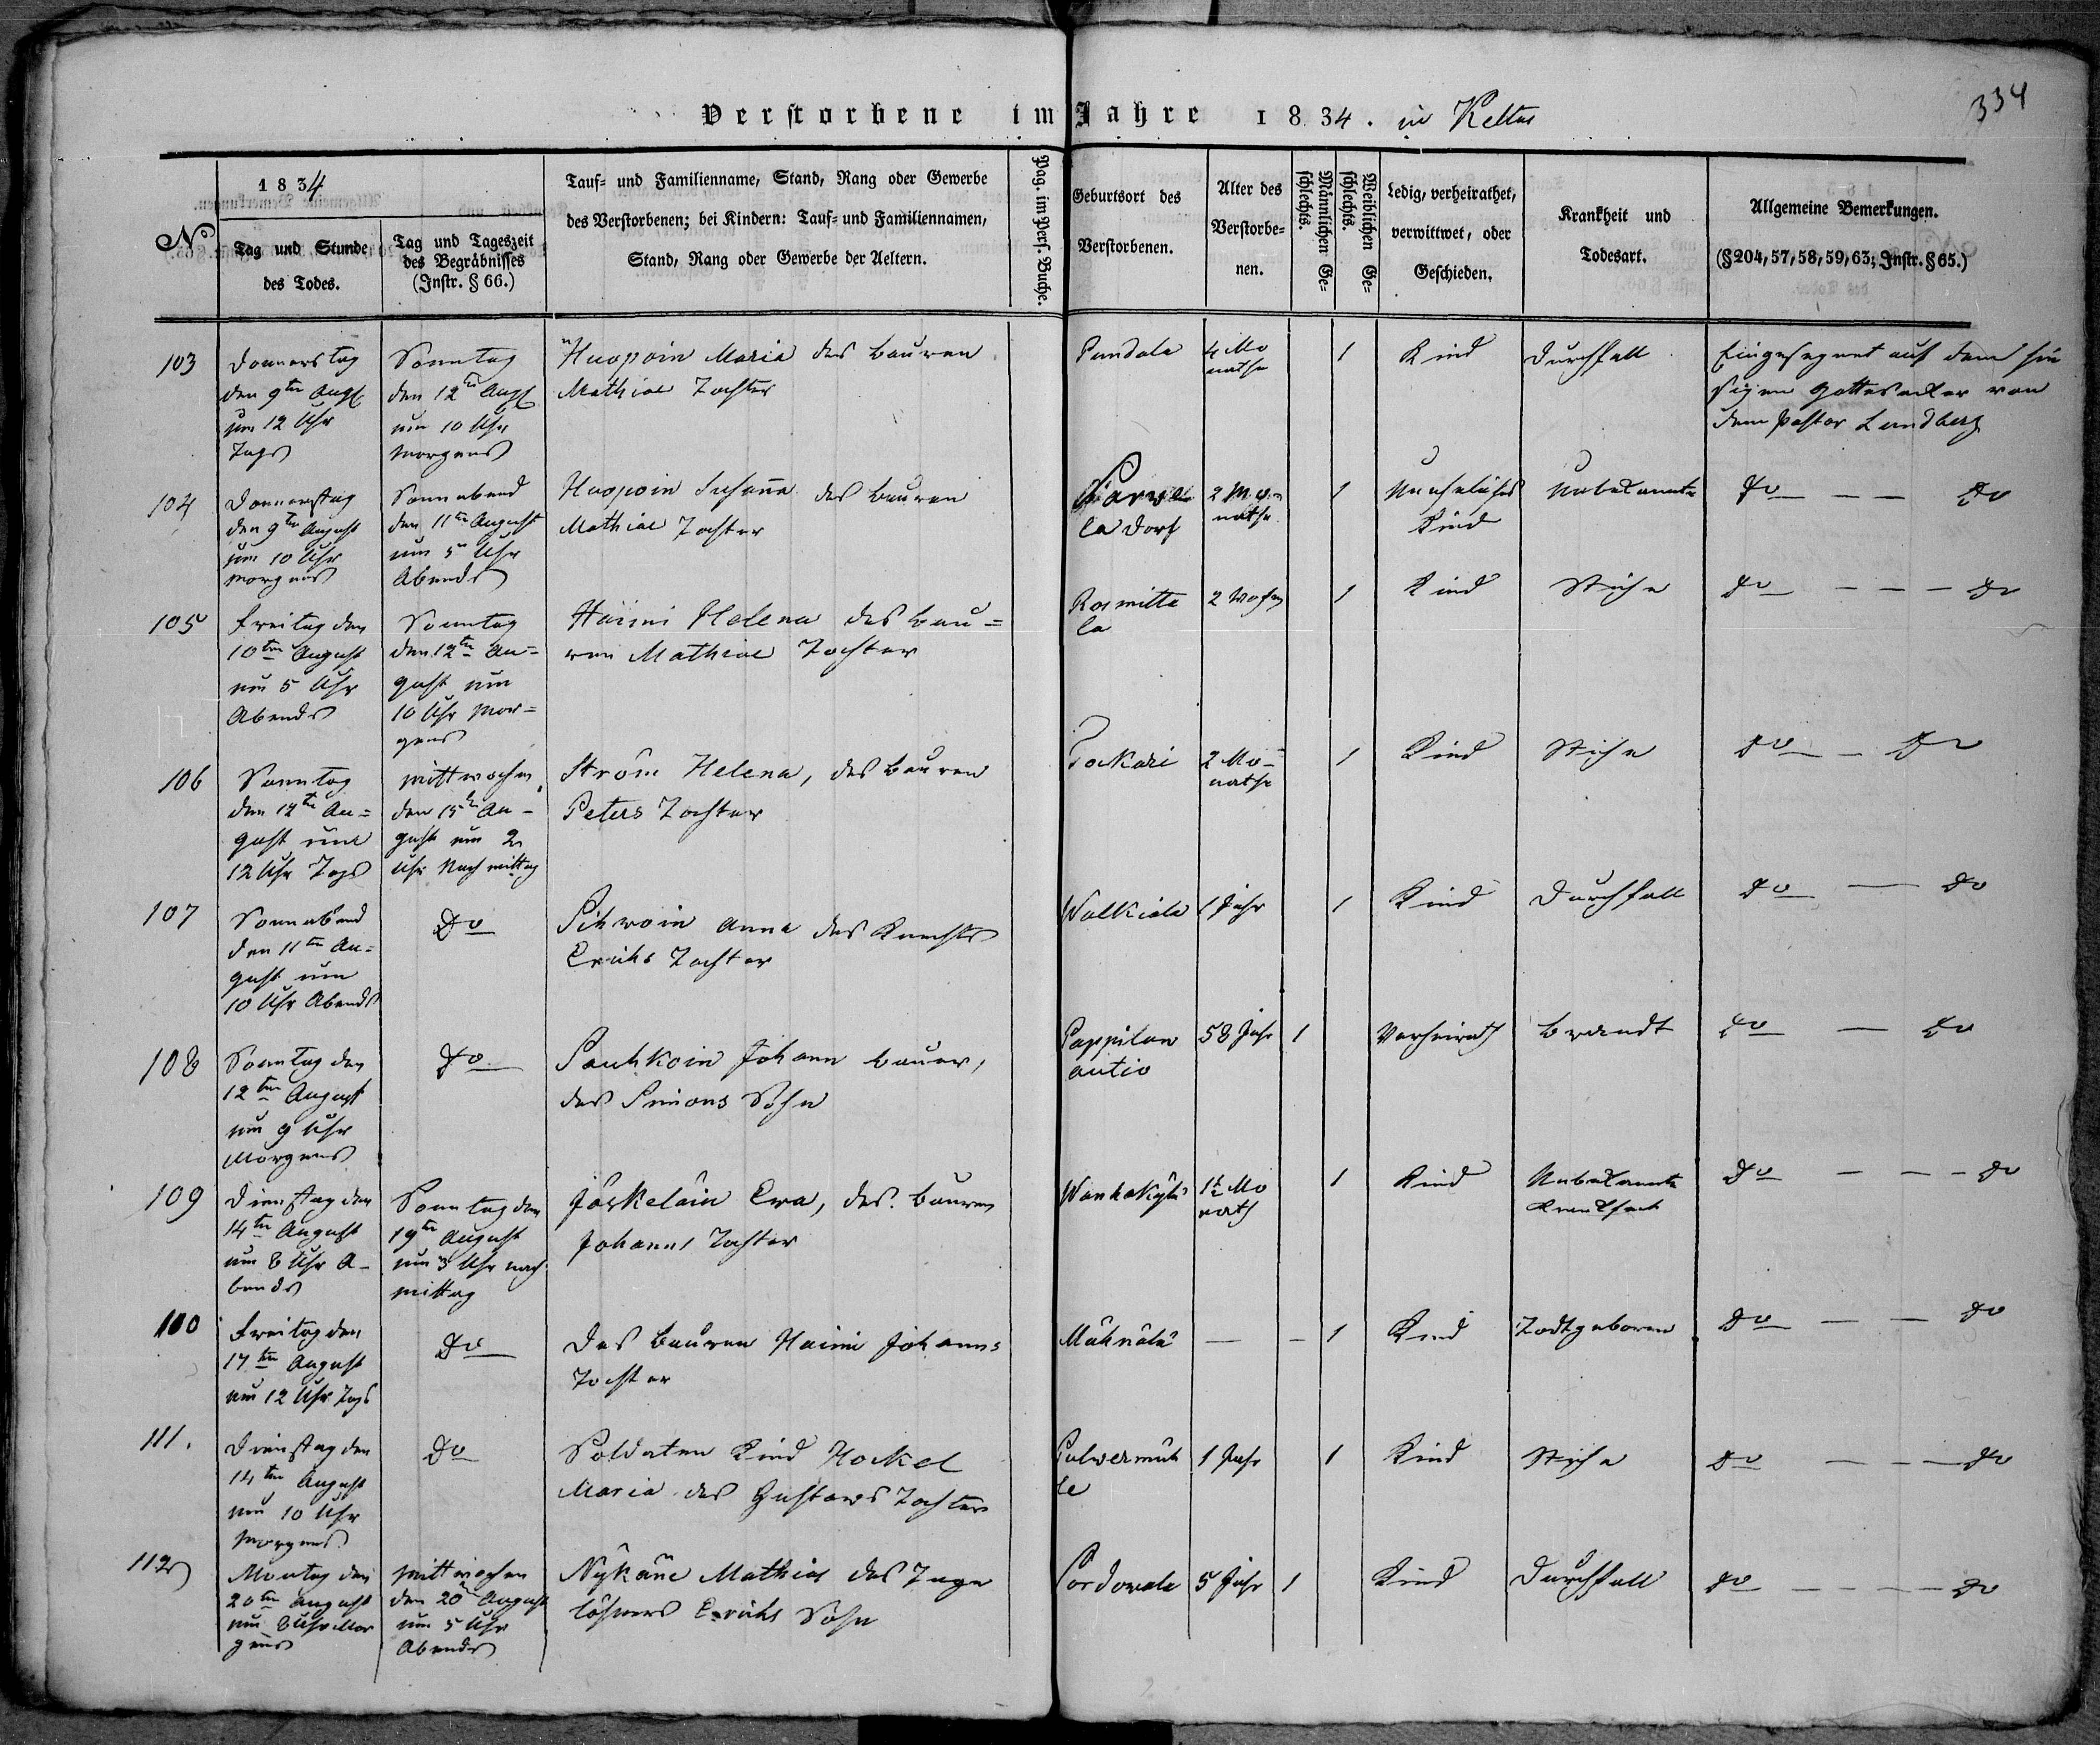 334
Verstorbene im Jahre 1834. in Keltus
No
1834
Tag und Stunde
des Todes.
Tag und Tageszeit
des Begräbnisses
(Instr. § 66.)
Tauf- und Familienname, Stand, Rang oder Gewerbe
des Verstorbenen; bei Kindern: Tauf- und Familiennamen,
Stand, Rang oder Gewerbe der Aeltern.
Pag. im Pers. Buche.
Geburtsort des
Verstorbenen.
Alter des
Verstorbe-
nen.
Männlichen Ge-
schlechts.
Weiblichen Ge-
schlechts.
Ledig, verheirathet,
verwittwet, oder
Geschieden.
Krankheit und
Todesart.
Allgemeine Bemerkungen.
(§ 204, 57, 58, 59, 63; Instr. § 65.)
103
Donnerstag
den 9ten Aug
um 12 Uhr
Tags
Sonntag
den 12ten Aug
um 10 Uhr
Morgens
Huopoin Maria des Bauren
Mathiae Tochter
Pundala
4 Mo
nathe
1
Kind
Durchfall
Eingesegnet auf dem hie
sigen Gottesacker von
dem Pastor Lundberg
104
Donnerstag
den 9ten August
um 10 Uhr
Morgens
Sonnabend
den 11ten August
um 5 Uhr
Abends
Huopoin Susanna des Bauren
Mathiae Tochter
la Dorf
2 Mo-
nathe
1
Unehelichs
Kind
Unbekannte
Do — — Do
105
Freitag den
10ten August
um 5 Uhr
Abends
Sonntag
den 12ten Au=
gust um
10 Uhr Mor=
gens
Häimi Helena des Bau=
ren Mathiae Tochter
Rosmitta
la
2 Wochen
1
Kind
Stiche
Do — — — Do
106
Sonntag
den 12ten Au=
gust um
12 Uhr Tags
Mittwochen
den 15ten Au-
gust um 2
Uhr Nachmittag
Ström Helena, des Bauren
Peters Tochter
Tockari
2 Mo-
nathe
1
Kind
Stiche
Do — Do
107
Sonnabend
den 11ten Au=
gust um
10 Uhr Abends
Do
Sihwoin Anna des Knechts
Erichs Tochter
Walkiala
1 Jahr
1
Kind
Durchfall
Do — Do
108
Sonntag den
12ten August
um 9 Uhr
Morgens
Do
Pauhkoin Johann Bauer,
des Simons Sohn
Pappilan
autio
58 Jahr
1
Verheirath
Brandt
Do — Do
109
Dienstag den
14ten August
um 8 Uhr A-
bends
Sonntag den
19ten August
um 3 Uhr nach
mittag
Jäskeläin Ewa, des Bauren
Johanns Tochter
Wanhakylä
1½ Mo
nath
1
Kind
Unbekannte
Krankheit
Do — — Do
110
Freitag den
17ten August
um 12 Uhr Tags
Do
Des Bauren Haimi Johanns
Tochter
Mäknälä
— -
1
Kind
Todtgeboren
Do — — Do
111.
Dienstag den
14ten August
um 10 Uhr
Morgens
Do
Soldaten Kind Hockel
Maria des Gustaws Tochter
Pulwermüh
le
1 Jahr
1
Kind
Stiche
Do — — Do
112
Montag den
20ten August
um 8 Uhr Mor
gens
Mittwochen
den August
um 5 Uhr
Abends
Nykäne Mathias des Tage
löhners Erichs Sohn
Pordowala
5 Jahr
1
Kind
Durchfall
Do — — — Do